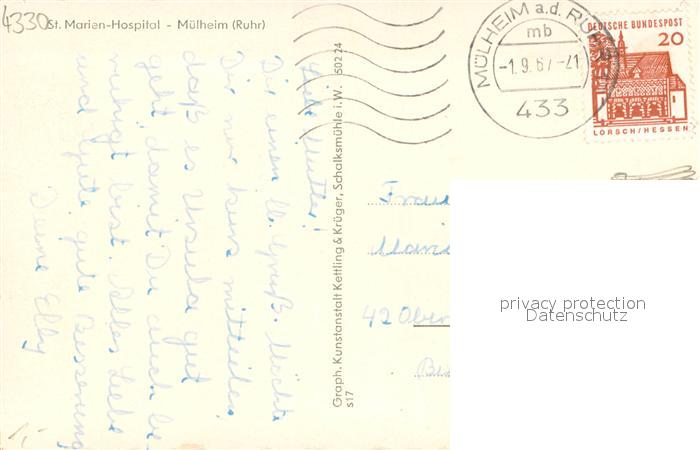 4330
St. Marien-Hospital - Mülheim (Ruhr)
MÜLHEIM a.d. RUHR
mb
-1.9.67-21
433
DEUTSCHE BUNDESPOST
20
LORSCH/HESSEN
Liebe Mutter!
Dir einen lb. Gruß. Möchte
Dir nur kurz mitteilen,
daß es Ursula gut
geht, damit Du auch be-
ruhigt bist. Alles Liebe
und Gute, gute Besserung
Deine Elly
Graph. Kunstanstalt Kettling & Krüger, Schalksmühle i. W. 50224
s17
Frau
Mari
42 Ober
privacy protection
Datenschutz
1,-